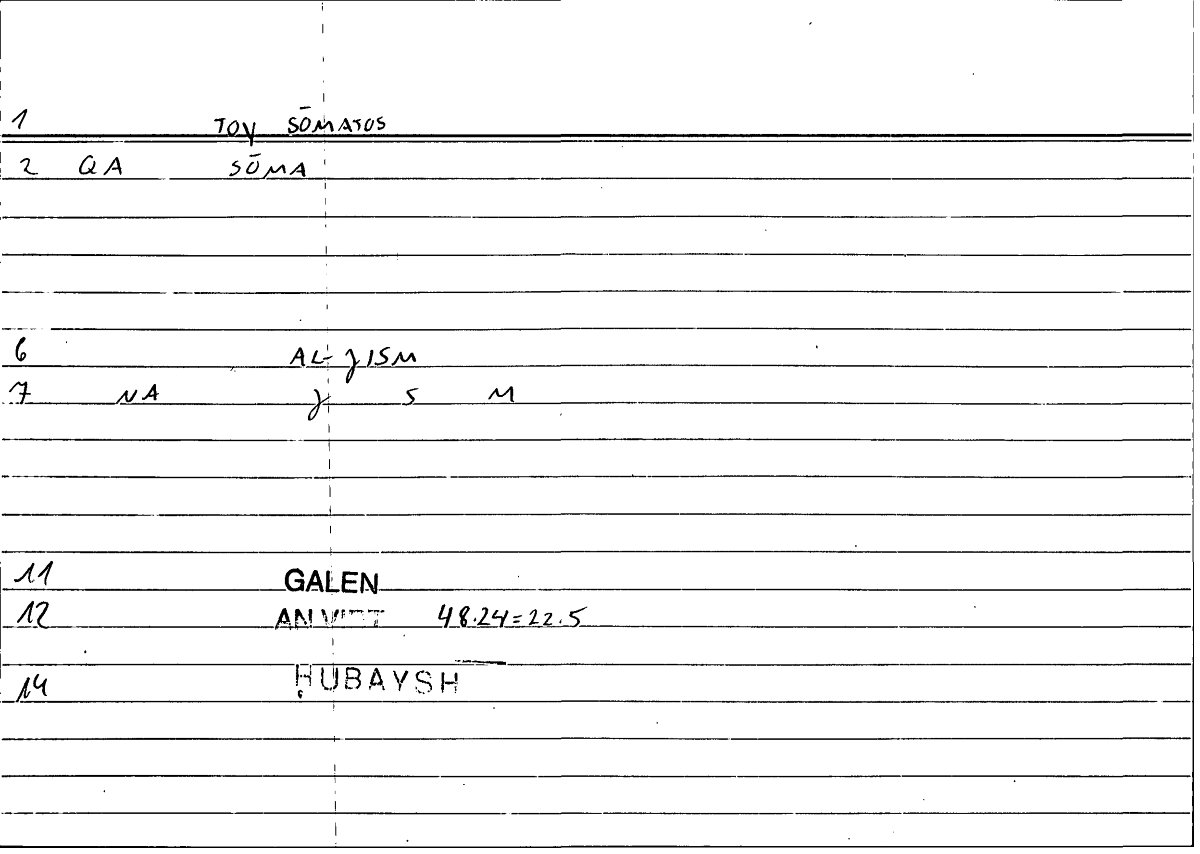 1 TOY SŌMATOS
2 QA SŌMA
6 AL-JISM
7 NA J S M
11 GALEN
12 AN VIRT 48.24=22.5
14 ḤUBAYSH